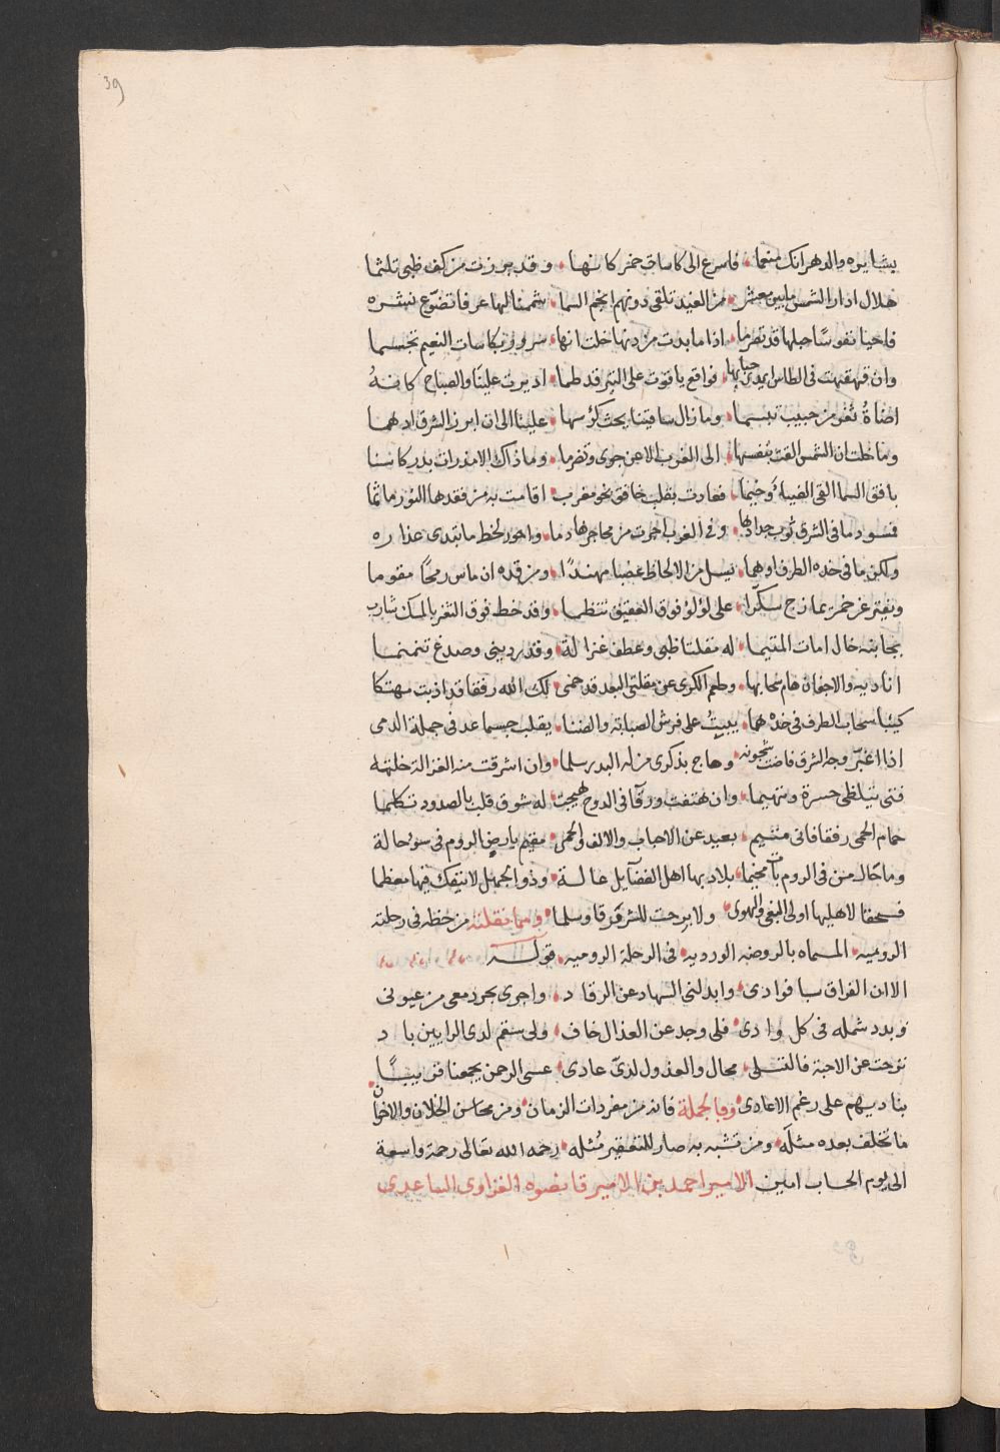 39
بشايره والدهر انك منعما • فاسرع الى كاسات خمر كانها • وقد برزت من كف ظبى تلثما
هلال ادار الشمس مابين معشر • من الغيد تلقى دونهم انجم السما • شممنا لها عرفا تضوّع نشره
فاحيا نفوسًا حبلها قد تصرما • اذا ما بدت من دنها خلت انها • سرور بكاسات النعيم تجسما
وان قهقهت فى الطاس ابدى حبابها • فواقع ياقوت على التبر قد طما • اديرت علينا والصباح كانهُ
اضاةُ ثغر من حبيب تبسما • وما زال ساقينا يحث كؤسها • علينا الى ان ابرز الشرق ادهما
وما خلت ان الشمس القت بنفسها • الى الغرب الا عن جوى وتضرما • وما ذاك الا مذ رات بدر كاسنا
بافق السما القى الضياء وخيما • فعادت بقلب خافق نحو مغرب • اقامت به من فقدها النور ماتما
فسود ما فى الشرق ثوب حدادها • وفى الغرب اجرت من محاجرها دما • واحور لخط ما تبدى عذاره
ولكن ما فى خده الطرف اوهما • يسل من الالحاظ عضبا مهندًا • ومن قده ان ماس رمحًا مقوما
ويفتر عن خمر يمازج سكّرا • على لؤلؤ فوق العقيق تنظما • وقد خط فوق الثغر بالمسك شارب
بجانبه خال امات المتيما • له مقلتا ظبى وعطف غزالة • وقد ردينى وصدغ تنمنما
اناديه والاجفان هام سحابها • وطعم الكرى عن مقلتى البعد قد حمى • لك الله رفقا قد اذبت مهتكا
كئيبا سحاب الطرف فى خده هما • يبيت على فرش الصبابة والضنا • يقلب جسما عد فى جملة الدمى
اذا اغبرّ وجه الشرق فاضت شجونه • وهاج بذكرى منزله البدر سلما • وان اشرقت منه الغزالة خلته
فتى يتلظى حسرة وتهيما • وان هتفت ورقا فى الدوح هيجت • له شوق قلب بالصدود تكلما
حمام الحمى رفقا فانى متيم • بعيد عن الاحباب والالف والحمى • مقيم بارض الروم فى سوء حالة
وما حال من فى الروم بات مخيما • بلاد بها اهل الفضآيل عالة • وذو الجهل لا ينفك فيها معظما
فسحقا لاهليها اولى البغى والهوى • ولا برحت للشر مرقا وسلما • ومما نقلته من خطه فى رحلته
الروميه • المسماه بالروضه الورديه • فى الرحلة الروميه • قوله
الا ان الفراق سبا فوادى • وابدلنى السهاد عن الرقاد • واجرى بحر دمعى من عيونى
وبدد شمله فى كل وادى • فلى وجد عن العذال خاف • ولى سقم لدى الرايين باد
نزحت عن الاحبة فالتسلى • محال والعذول لدىّ عادى • عسى الرحمن يجمعنا قريبًا
بناديهم على رغم الاعادى • وبالجملة فانه من مفردات الزمان • ومن محاسن الخلان والاخوان
ما تخلف بعده مثله • ومن تشبه به صار للتقصير مُثله • رحمه الله تعالى رحمة واسعة
الى يوم الحساب امين الامير احمد بن الامير قانصوه الغزاوى الساعدى